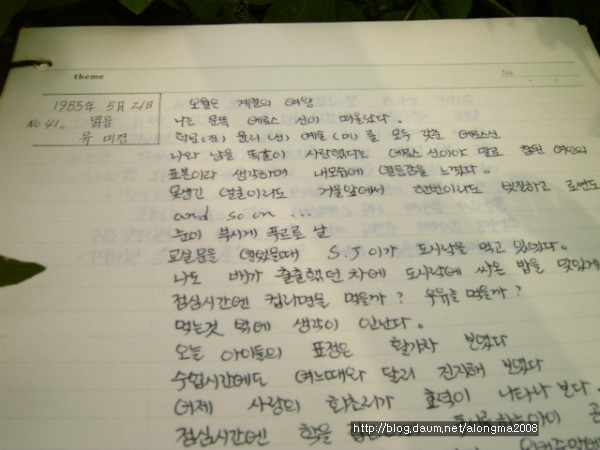 theme
No.
1985年 5月 21日
No 41. 맑음
유 미경
오월은 계절의 여왕
나는 문뜩 에로스 신이 떠올랐다.
학님(진) 윤리(선) 예술(미)를 모두 갖춘 에로스신
나와 남을 똑같이 사랑했다는 에로스 신이야 말로 참된 여인의
표본이라 생각하며 내모습에 열등감을 느꼈다.
못생긴 얼굴이라도 거울앞에서 한번이라도 빗질하고 로션도
and so on ...
눈이 부시게 푸르른 날
교실문을 열었을때 S.J 이가 도시락을 먹고 있었다.
나도 배가 출출했던 차에 도시락에 싸온 밥을 맛있게
점심시간엔 컵라면을 먹을까? 우유를 먹을까?
먹는것 밖에 생각이 안난다.
오늘 아이들의 표정은 활기차 보였다
수업시간에도 여느때와 달리 진지해 보였다
어제 사랑의 회초리가 효력이 나타나 보다.
점심시간엔 학을
http://blog.daum.net/alongma2008